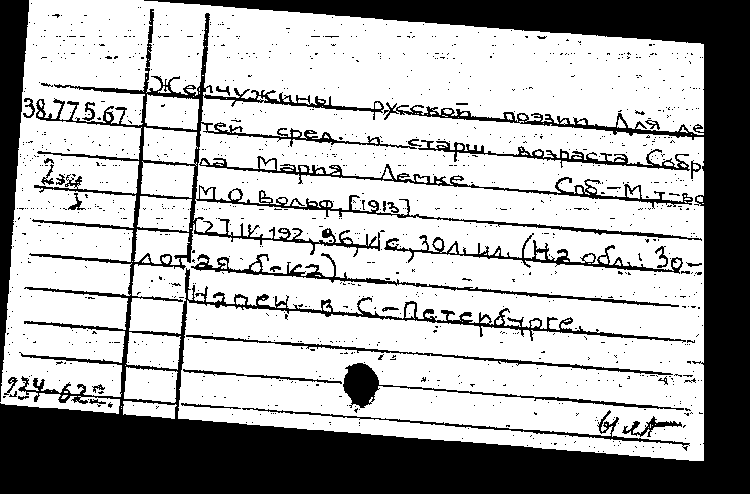 Жемчужины русской поэзии. Для де
38.77.5.67.
тей сред. и старш. возраста. Собр
ла Мария Лемке. Спб.-М., т-во
2 экз
М.О. Вольф, [1913].
[2], IV, 192, 96, VI с., 30 л. ил. (На обл.: Зо-
лотая б-ка).
Напеч. в С.-Петербурге.
234-62